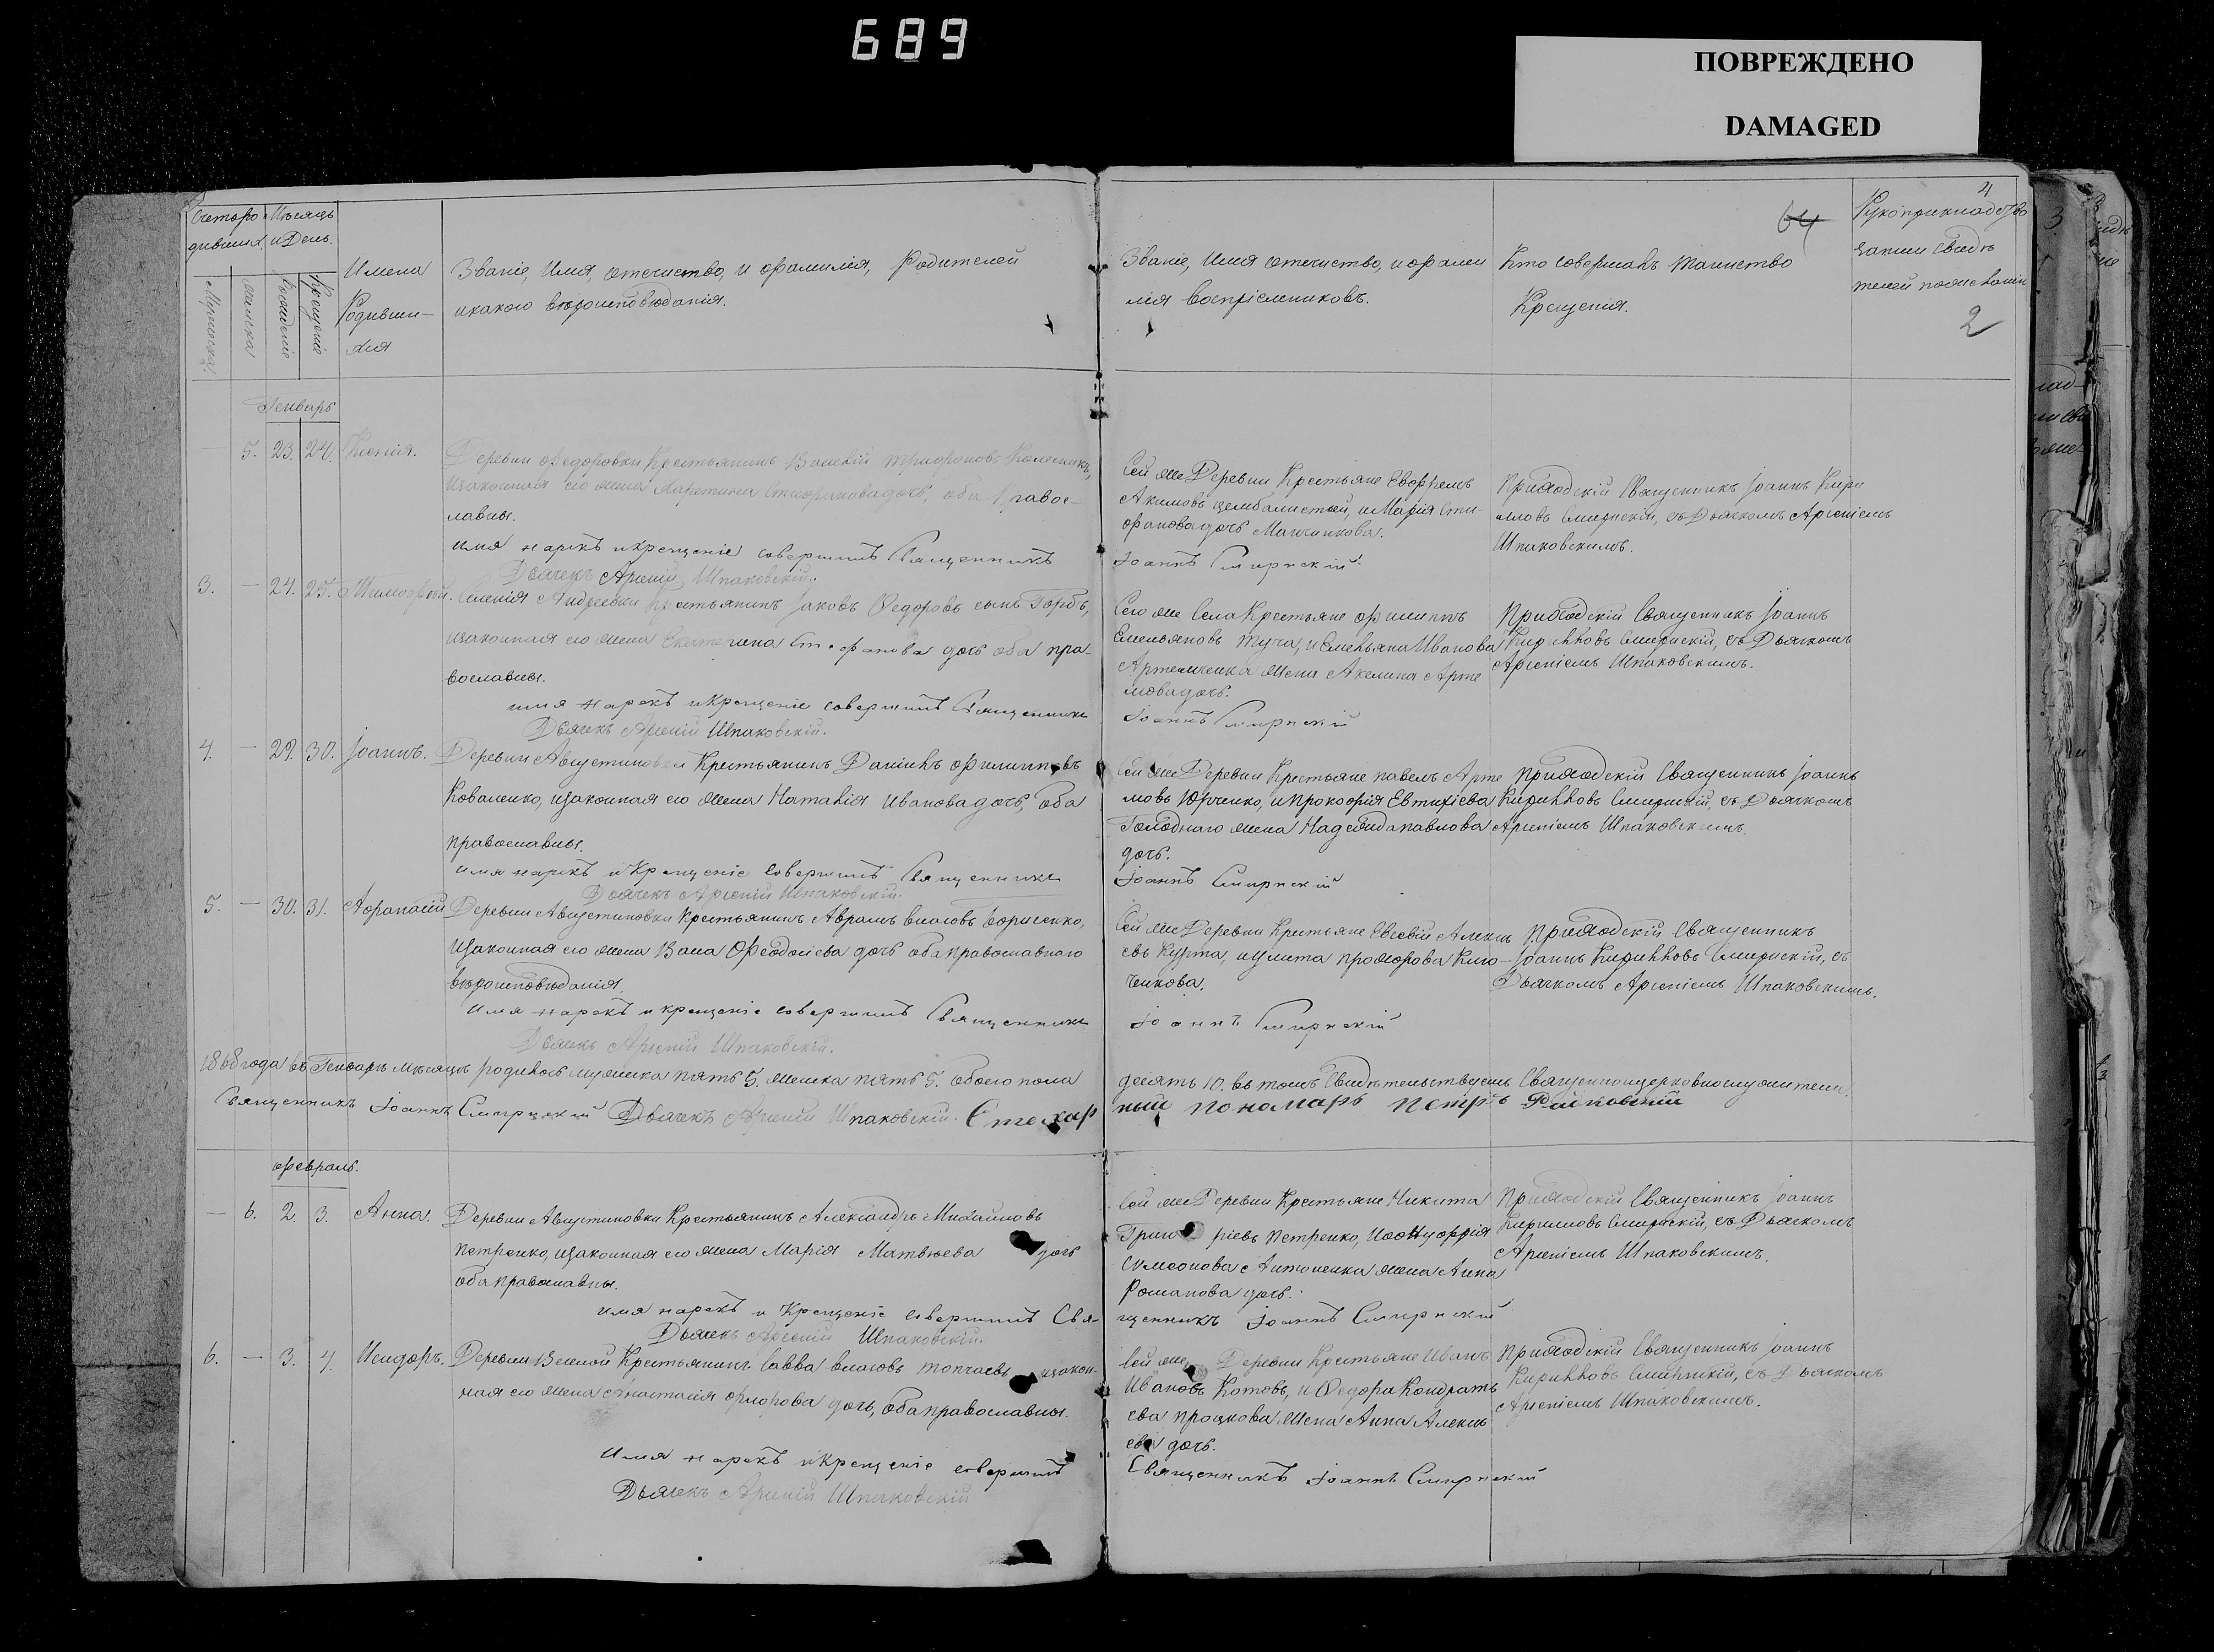 689
ПОВРЕЖДЕНО
DAMAGED
4
64
2
Счетъ родившихся.
Мѣсяцъ и День.
Мужеска.
женска
Рожденіе
Крещеніе
Имена
Родивши-
хся
Званіе, Имя, отечиство, и фамилія, Родителей
и какого вѣроисповѣданія.
Званіе, Имя отечиство, и фами
лія воспріемниковъ.
Кто совершалъ таинство
Крещенія.
Рукоприкладство
записи свидѣ
телей
Генварь
5. 23. 24. Ксенія.
Деревни Федоровки Крестьянинъ Василій Трифоновъ Колесникъ,
и законная его жена Стефанова дочь, оба Правос-
лавны.
Имя нарекъ и крещеніе совершилъ Священникъ
Дьячекъ Арсеній Шпаковскій.
Сей же Деревни Крестьяне Евфремъ
Акимовъ Цембалистый, и Марія Сте-
фанова дочь Манчинкова.
Іоаннъ Смирнскій
Приходскій Священникъ Іоаннъ Кири
лловъ Смирнскій, съ Дьячкомъ Арсеніемъ
Шпаковскимъ.
3. — 24. 25. Тимофей.
Селенія Андреевки Крестьянинъ Іаковъ Федоровъ сынъ Горбъ,
и законная его жена Екатерина Стефанова дочь оба пра-
вославны.
имя нарекъ и крещеніе совершилъ Священникъ
Дьячекъ Арсеній Шпаковскій.
Сего же Села Крестьяне Филиппъ
Емельяновъ Туча, и Емельяна Иванова
Артемченка жена Акелина Арте
мова дочь.
Іоаннъ Смирнскій
Приходскій Священникъ Іоаннъ
Кирилловъ Смирнскій, съ Дьячкомъ
Арсеніемъ Шпаковскимъ.
4. — 29. 30. Іоаннъ.
Деревни Августиновки Крестьянинъ Даніилъ Филипповъ
Коваленко, и законная его жена Наталія Иванова дочь, оба
православны.
имя нарекъ и Крещеніе совершилъ Священникъ
Дьячекъ Арсеній Шпаковскій.
Сей же Деревни Крестьяне Павелъ Арте
мовъ Юрченко, и Прокофія Евтихіева
Голоднаго жена Надежда Павлова
дочь.
Іоаннъ Смирнскій
Приходскій Священникъ Іоаннъ
Кирилловъ Смирнскій, съ Дьячкомъ
Арсеніемъ Шпаковскимъ.
5. — 30. 31. Афанасій
Деревни Августиновки Крестьянинъ Аврамъ Власовъ Борисенко,
и законная его жена Васса Феодосіева дочь оба православного
вѣроисповѣданія.
Имя нарекъ и крещеніе совершилъ Священникъ
Дьячекъ Арсеній Шпаковскій.
Сей же Деревни Крестьяне Евсевій Алексѣ
евъ Курта, и Улита
ченкова.
Іоаннъ Смирнскій
Приходскій Священникъ
Іоаннъ Кирилловъ Смирнскій, съ
Дьячкомъ Арсеніемъ Шпаковскимъ.
1868 года въ Генварѣ Мѣсяцѣ родилось мужеска пять 5. женска пять 5. обоего пола десять 10. въ томъ Свидѣтельствуемъ Священноцерковнослужители.
Священникъ Іоаннъ Смирнскій Дьячекъ Арсеній Шпаковскій. Стехарный пономарь Петръ
февраль.
— 6. 2. 3. Анна.
Деревни Августиновки Крестьянинъ Александръ Михайловъ
Петренко, и законная его жена Марія Матвѣева дочь
оба православны.
имя нарекъ и Крещеніе совершилъ Свя-
Дьячекъ Арсеній Шпаковскій.
Сей же Деревни Крестьяне Никита
Григоріевъ Петренко, и Оонуфрія
Симеонова Антоненка жена Анна
Романова дочь.
щенникъ Іоаннъ Смирнскій
Приходскій Священникъ Іоаннъ
Кирилловъ Смирнскій, съ Дьячкомъ
Арсеніемъ Шпаковскимъ.
6. — 3. 4. Исидоръ.
Деревни Веселой Крестьянинъ Савва Власовъ Топчаевъ и закон-
ная его жена Анастасія Флорова дочь, оба православны.
Имя нарекъ и Крещеніе совершилъ
Дьячекъ Арсеній Шпаковскій
Сей же Деревни Крестьяне Иванъ
Ивановъ Котовъ, и Федора Кондрать
ева Процкова жена Анна Алексѣ
ева дочь.
Священникъ Іоаннъ Смирнскій
Приходскій Священникъ Іоаннъ
Кирилловъ Смирнскій, съ Дьячкомъ
Арсеніемъ Шпаковскимъ.